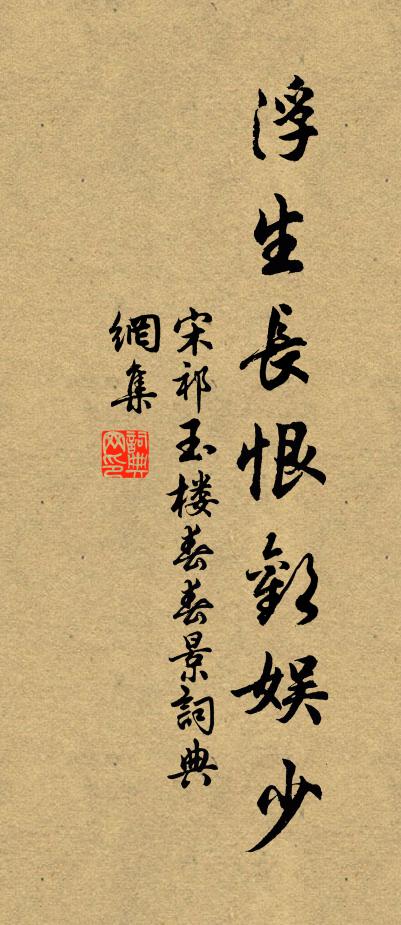 浮生長恨歡娱少
宋祁玉楼春春景詞典
網集
詞典网印